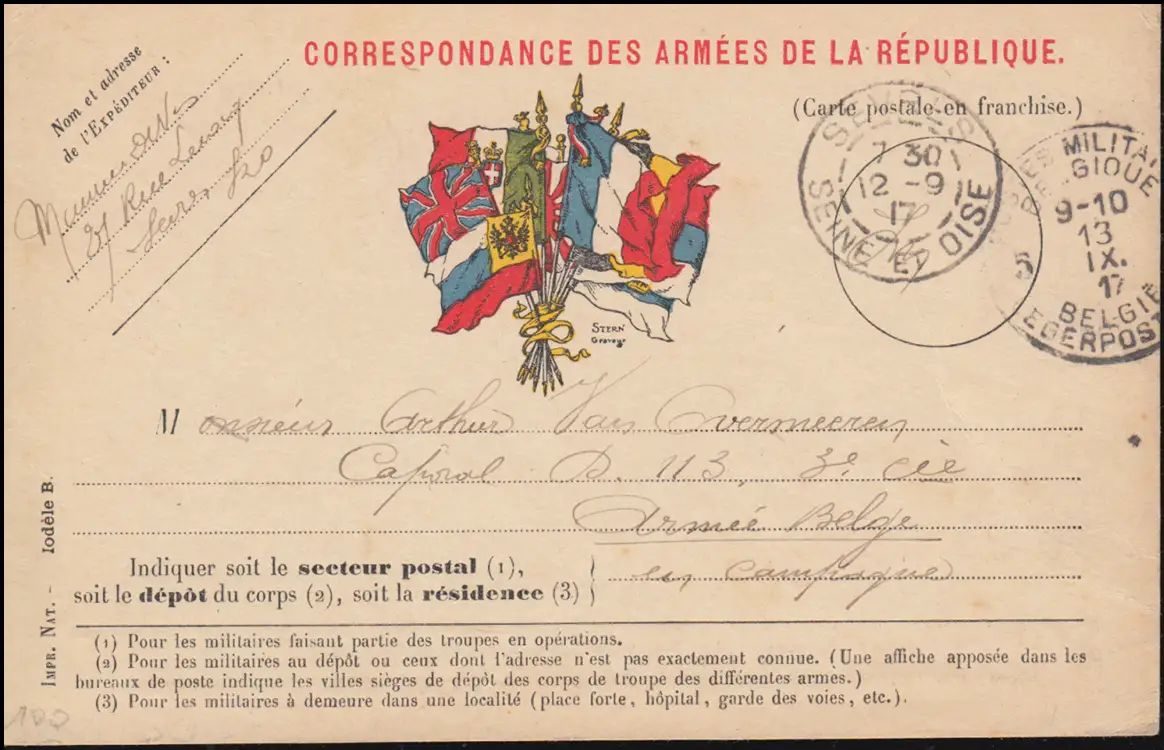 CORRESPONDANCE DES ARMÉES DE LA RÉPUBLIQUE.
(Carte postale en franchise.)
Nom et adresse
de l'EXPÉDITEUR :
27 Rue
SÈVRES
7 30
12 - 9
17
SEINE ET OISE
POSTES MILITAIRES
BELGIQUE
9-10
13
IX.
17
BELGIË
LEGERPOST
5
STERN
Graveur
Monsieur Arthur Van Overmeeren
Caporal D. 113, 3e Cie
Armée Belge
en campagne
Indiquer soit le secteur postal (1),
soit le dépôt du corps (2), soit la résidence (3)
IMPR. NAT. - Iodèle B.
(1) Pour les militaires faisant partie des troupes en opérations.
(2) Pour les militaires au dépôt ou ceux dont l'adresse n'est pas exactement connue. (Une affiche apposée dans les
bureaux de poste indique les villes sièges de dépôt des corps de troupe des différentes armes.)
(3) Pour les militaires à demeure dans une localité (place forte, hôpital, garde des voies, etc.).
100